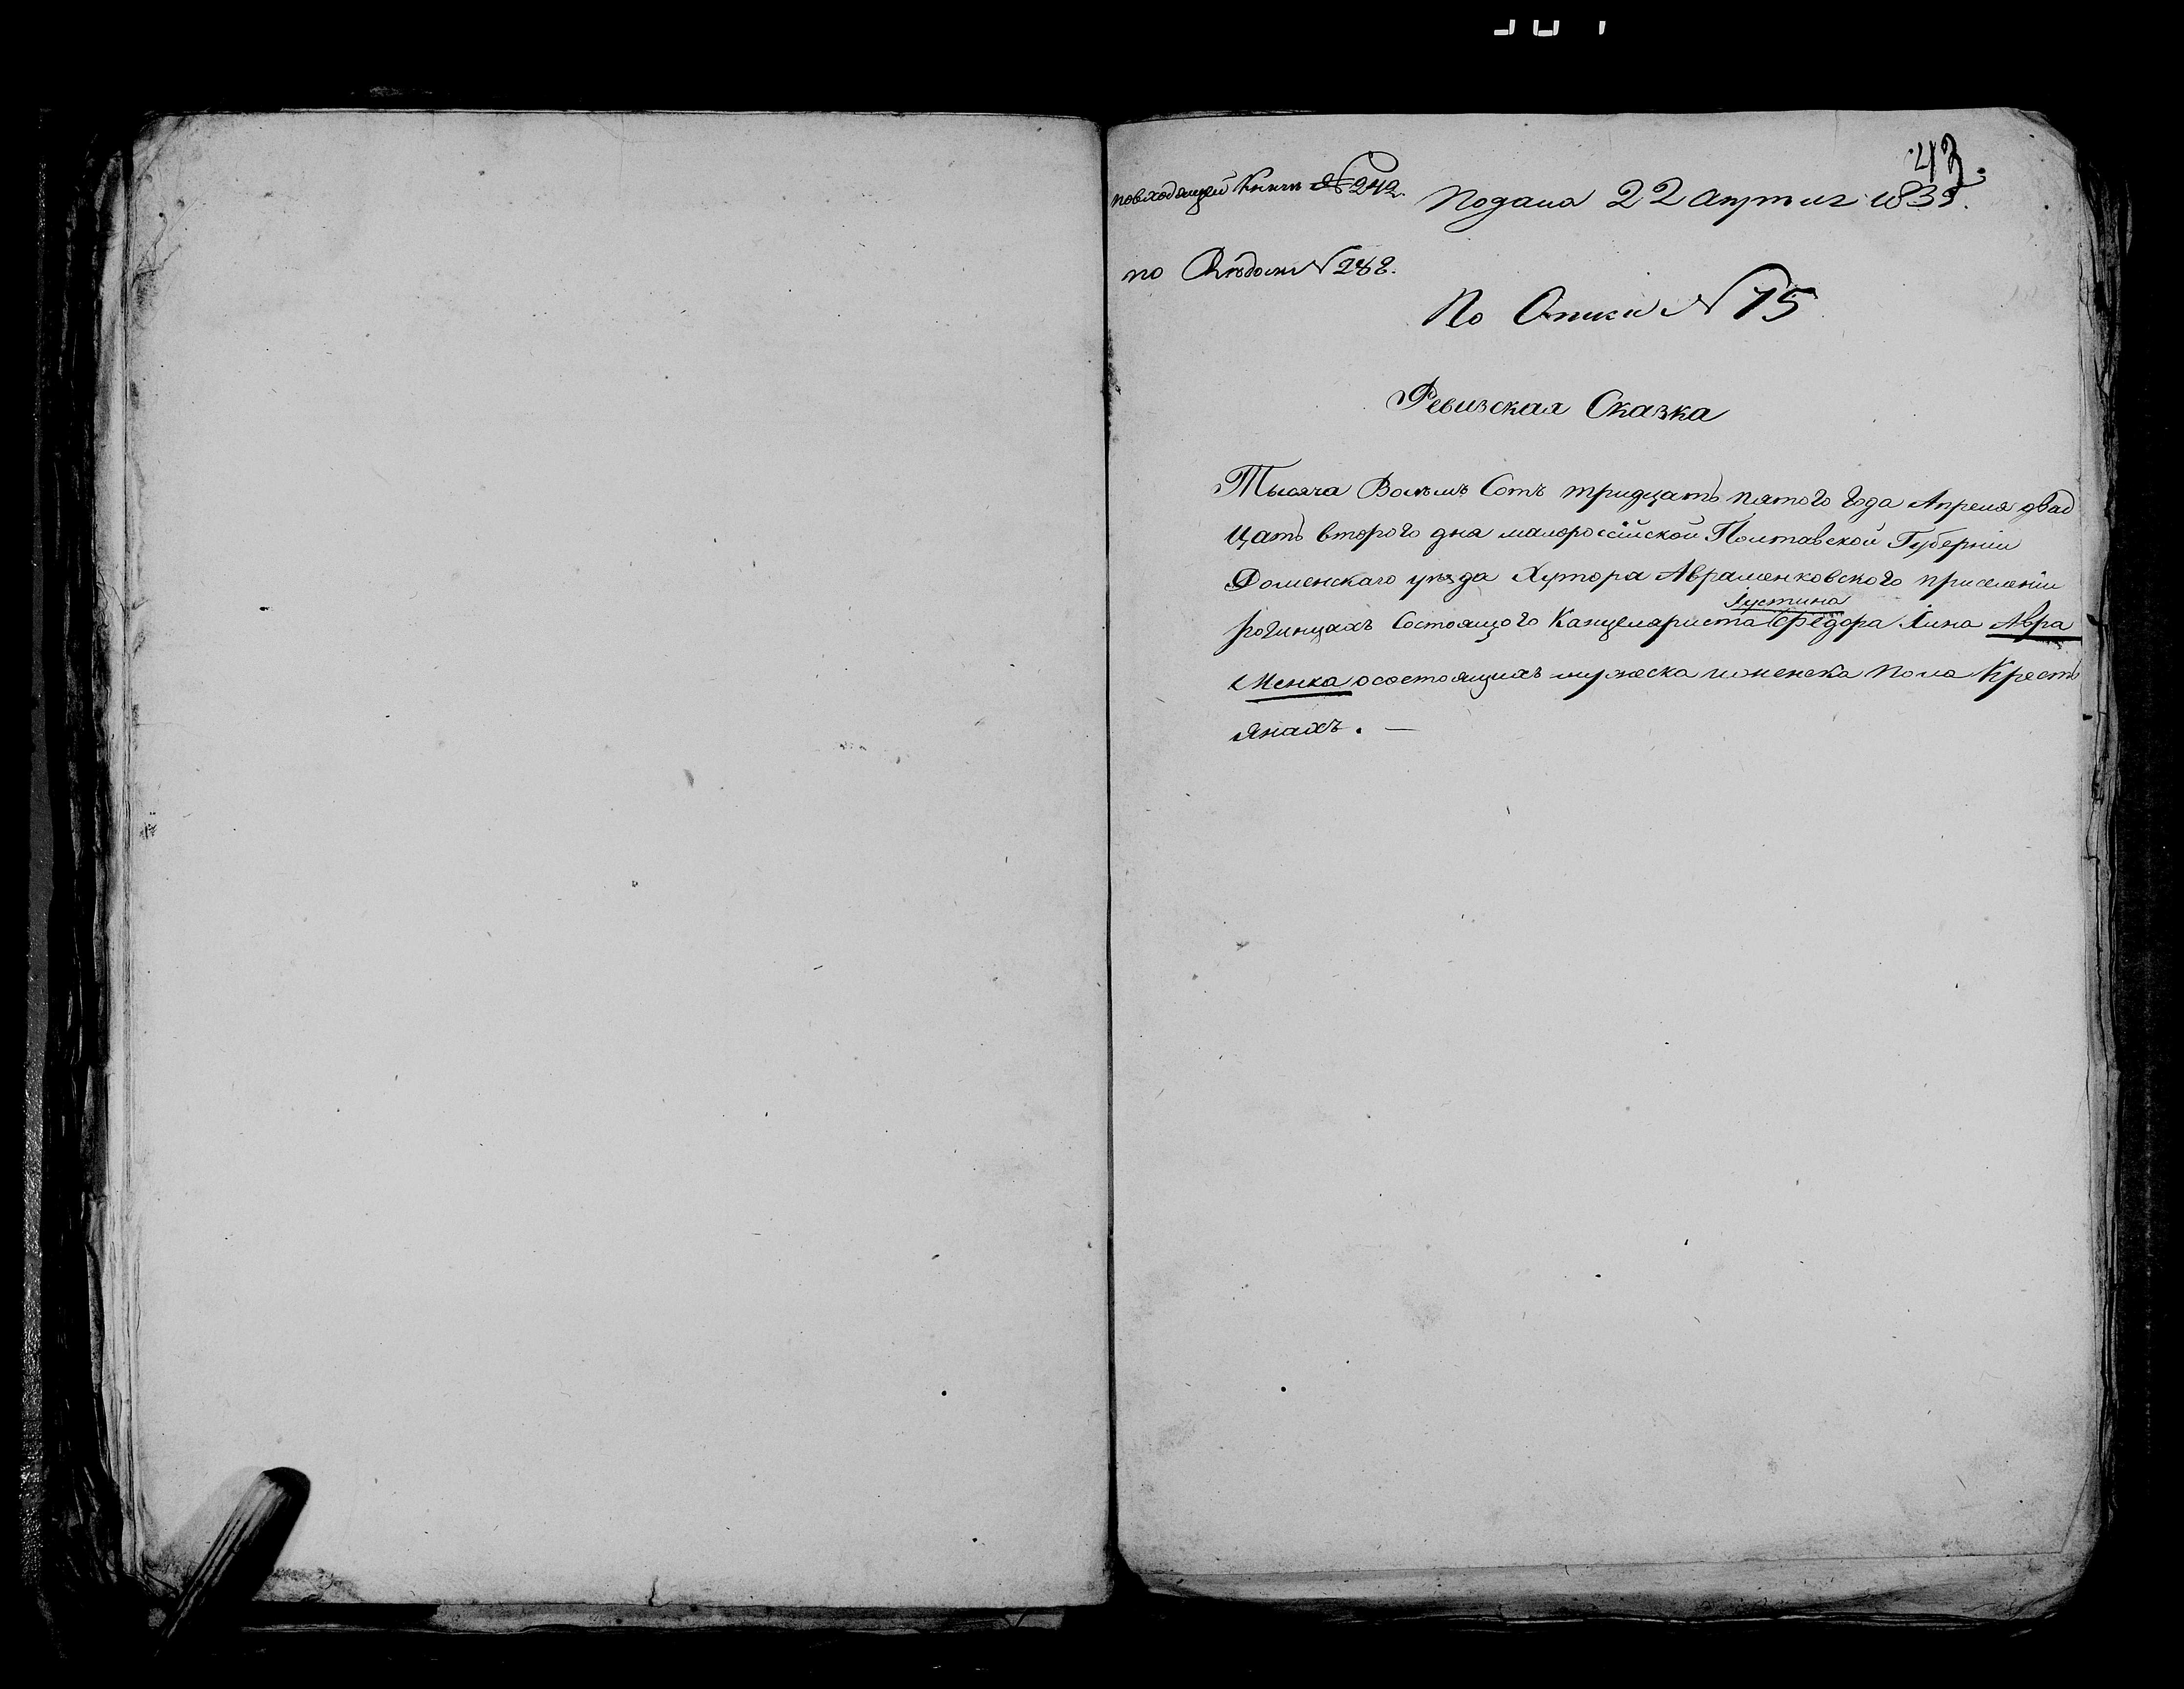 43.
по входящей Книги № 242.
Подана 22 апреля 1835.
по №
По Описи № 15
Ревизская Сказка
Тысяча Восемь Сотъ тридцать пятого года Апреля двад
цать второго дня малороссійской Полтавской Губерніи
Роменскаго уезда Хутора Авраменковского приселеніи
рогинцахъ Состоящого Канцеляриста Федора Авра
Устина
менка о состоящихъ мужеска и женска пола Кресть
янахъ. —